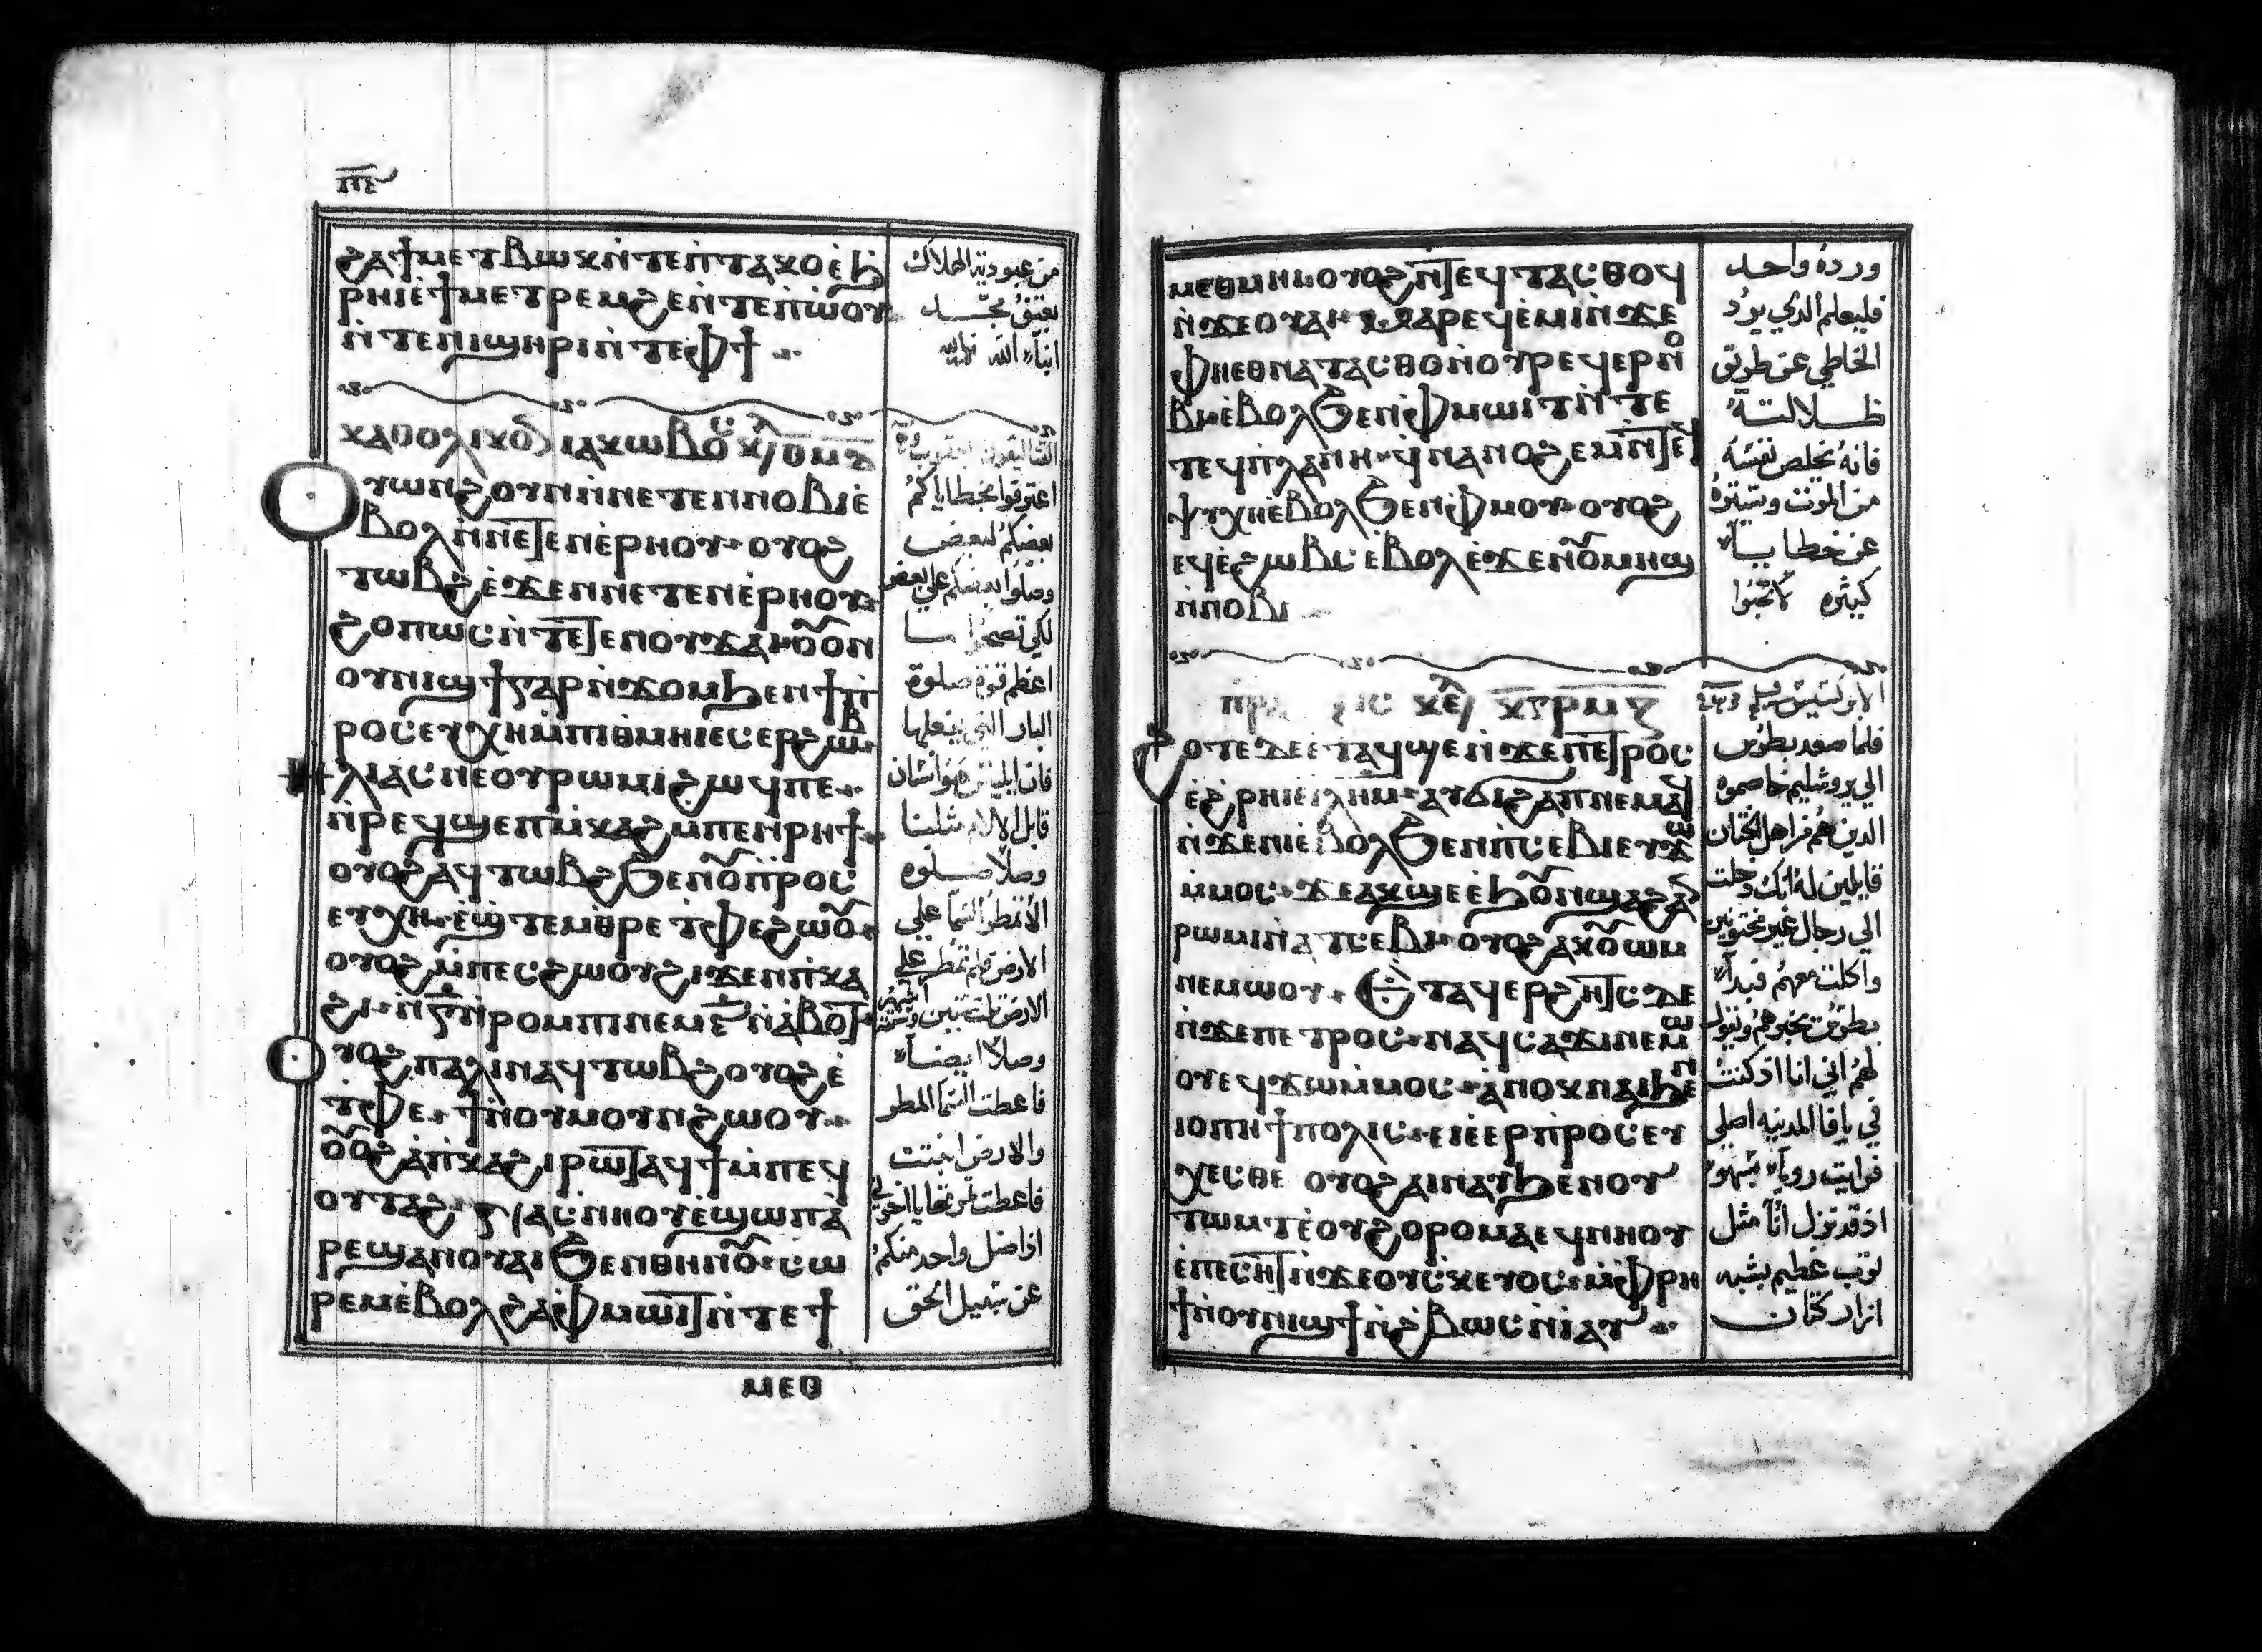 ⲡⲉ
ϩⲁϯⲙⲉⲧⲃⲱⲕⲛ̀ⲧⲉⲡⲧⲁⲕⲟⲉ̀ϧ
ⲣⲏⲓⲉ̀ϯⲙⲉⲧⲣⲉⲙϩⲉⲛ̀ⲧⲉⲡⲱ̀ⲟⲩ
ⲛ̀ⲧⲉⲛⲓϣⲏⲣⲓⲛ̀ⲧⲉⲫϯ
من عبودية الهلاك
انباء الله
ⲕⲁⲑⲟⲗⲓⲕⲟⲛ ⲓⲁⲕⲱⲃⲟⲥ
ⲩⲱⲛϩⲟⲩⲛⲛ̀ⲛⲉⲧⲉⲛⲛⲟⲃⲓⲉ̀
ⲃⲟⲗⲛ̀ⲛⲉⲧⲉⲛⲉ̀ⲣⲏⲟⲩ ⲟⲩⲟϩ
ⲧⲱⲃϩⲉ̀ϫⲉⲛⲛⲉⲧⲉⲛⲉ̀ⲣⲏⲟⲩ
ϩⲟⲡⲱⲥⲛ̀ⲧⲉⲧⲉⲛⲟⲩϫⲁⲓ ⲟⲩⲟⲛ
ⲟⲩⲛⲓϣϯⲅⲁⲣⲛ̀ϫⲟⲙϧⲉⲛϯⲡ̀
ⲣⲟⲥⲉⲩⲭⲏⲙ̀ⲡⲓⲑⲙⲏⲓⲉⲥⲉⲣϩⲱⲃ
ⲗⲓⲁⲥⲛⲉⲟⲩⲣⲱⲙⲓϩⲱϥⲡⲉ
ⲛ̀ⲣⲉϥϣⲉⲡⲙ̀ⲕⲁϩⲙ̀ⲡⲉⲛⲣⲏϯ
ⲟⲩⲟϩⲁϥⲧⲱⲃϩϧⲉⲛⲟⲩⲡⲣⲟⲥ
ⲉⲩⲭⲏ ⲉ̀ϣ̀ⲧⲉⲙⲑⲣⲉ ⲧ̀ⲫⲉϩⲱⲟⲩ
ⲟⲩⲟϩⲙ̀ⲡⲉⲥϩⲱⲟⲩϩⲓϫⲉⲛⲡ̀ⲕⲁ
ϩⲓ ⲛ̀ⲅⲛ̀ⲣⲟⲙⲡⲓⲛⲉⲙⲋⲛ̀ⲁ̀ⲃⲟⲧ ⲟ
ⲩⲟϩⲡⲁⲗⲓⲛⲁϥⲧⲱⲃϩⲟⲩⲟϩⲉ̀
ⲧ̀ⲫⲉ ϯⲛ̀ⲟⲩⲙⲟⲩⲛϩⲱⲟⲩ
ⲟⲩⲟϩⲁ̀ⲡ̀ⲕⲁϩⲓⲣⲱⲧⲁϥϯⲙ̀ⲡⲉϥ
ⲟⲩⲧⲁϩ ⲛⲁⲥⲛⲏⲟⲩⲉ̀ϣⲱⲡⲁ̀
ⲣⲉϣⲁⲛⲟⲩⲁⲓϧⲉⲛⲑⲏⲛⲟⲩ ⲥⲱ
ⲣⲉⲙⲉ̀ⲃⲟⲗϩⲁⲫ̀ⲙⲱⲓⲧⲛ̀ⲧⲉϯ
اعترفوا بخطاياكم
بعضكم لبعض
وصلوا بعضكم علي بعض
لكي تصحوا ما
اعظم قوة صلوة
البار التي يفعلها
فان ايلياس هو انسان
قابل الالام مثلنا
وصلا صلوه
الا تمطر السما علي
الارض فلم تمطر علي
وصلا ايضاً
فاعطت السما المطر
والارض انبتت
اذا ضل واحد منكم
عن سبيل الحق
ⲙⲉⲑ
ⲙⲉⲑⲙⲏⲓ ⲟⲩⲟϩⲛ̀ⲧⲉϥⲧⲁⲥⲑⲟϥ
ⲛ̀ϫⲉⲟⲩⲁⲓ ⲙⲁⲣⲉϥⲉ̀ⲙⲓⲛ̀ϫⲉ
ⲫⲏⲉⲑⲛⲁⲧⲁⲥⲑⲟⲛ̀ⲟⲩⲣⲉϥⲉⲣⲛⲟ
ⲃⲓ ⲉ̀ⲃⲟⲗϧⲉⲛⲫ̀ⲙⲱⲓⲧⲛ̀ⲧⲉ
ⲧⲉϥⲡⲗⲁⲛⲏ ϥⲛⲁⲛⲟϩⲉⲙⲛ̀ⲧⲉϥ
ⲯⲩⲭⲏⲉ̀ⲃⲟⲗϧⲉⲛⲫ̀ⲙⲟⲩ ⲟⲩⲟϩ
ⲉϥⲉ̀ϩⲱⲃⲥⲉ̀ⲃⲟⲗⲉ̀ϫⲉⲛⲟⲩⲙⲏϣ
ⲛ̀ⲛⲟⲃⲓ
ورده واحد
فليعلم الذي يرد
الخاطي عن طريق
ضلالته
فانه يخلص نفسه
من الموت ويستره
عن خطايا
كثيره لا تحبوا
الابركسيس
ϩⲟⲧⲉⲇⲉⲉ̀ⲧⲁϥϣⲉⲛ̀ϫⲉⲡⲉⲧⲣⲟⲥ
ⲉ̀ϩⲣⲏⲓⲉⲓⲗⲏⲙ ⲁⲩϭⲓϩⲁⲡⲛⲉⲙⲁϥ
ⲛ̀ϫⲉⲛⲓⲉ̀ⲃⲟⲗϧⲉⲛⲡ̀ⲥⲉⲃⲓⲉⲩϫⲱ
ⲙ̀ⲙⲟⲥ ϫⲉⲁⲕϣⲉⲉ̀ϧⲟⲩⲛϣⲁϩⲁⲛ
ⲣⲱⲙⲓⲛ̀ⲁⲧⲥⲉⲃⲓ ⲟⲩⲟϩⲁⲕⲟⲩⲱⲙ
ⲛⲉⲙⲱⲟⲩ ⲉⲧⲁϥⲉⲣϩⲏⲧⲥ ⲇⲉ
ⲛ̀ϫⲉⲡⲉⲧⲣⲟⲥ ⲛⲁϥⲥⲁϫⲓⲛⲉⲙⲱ
ⲟⲩⲉϥϫⲱⲙ̀ⲙⲟⲥ ⲁ̀ⲛⲟⲕⲛⲁⲓϧⲉⲛ
ⲓⲟⲡⲏϯⲡⲟⲗⲓⲥ ⲉⲓⲉ̀ⲉⲣⲡ̀ⲣⲟⲥⲉⲩ
ⲭⲉⲥⲑⲉ ⲟⲩⲟϩⲁⲓⲛⲁⲩϧⲉⲛⲟⲩ
ⲧⲱⲙⲧⲉ̀ⲟⲩϩⲟⲣⲟⲙⲁⲉϥⲛⲏⲟⲩ
ⲉ̀ⲡⲉⲥⲏⲧⲛ̀ϫⲉⲟⲩⲥ̀ⲕⲉⲩⲟⲥ ⲙ̀ⲫⲣⲏ
ϯⲛ̀ⲟⲩⲛⲓϣϯⲛ̀ϩⲃⲱⲥⲛ̀ⲓⲁⲩ
فلما صعد بطرس
الي يروشليم خاصموه
الذين هم من اهل الختان
قايلين له انك دخلت
الي رجال غير مختونين
واكلت معهم فبدأ
بطرس يخبرهم ويقول
لهم اني انا اذ كنت
في يافا المدينه اصلي
فرايت رويا بسهوه
اذ قد نزل انا مثل
ثوب عظيم يشبه
ازار كتان